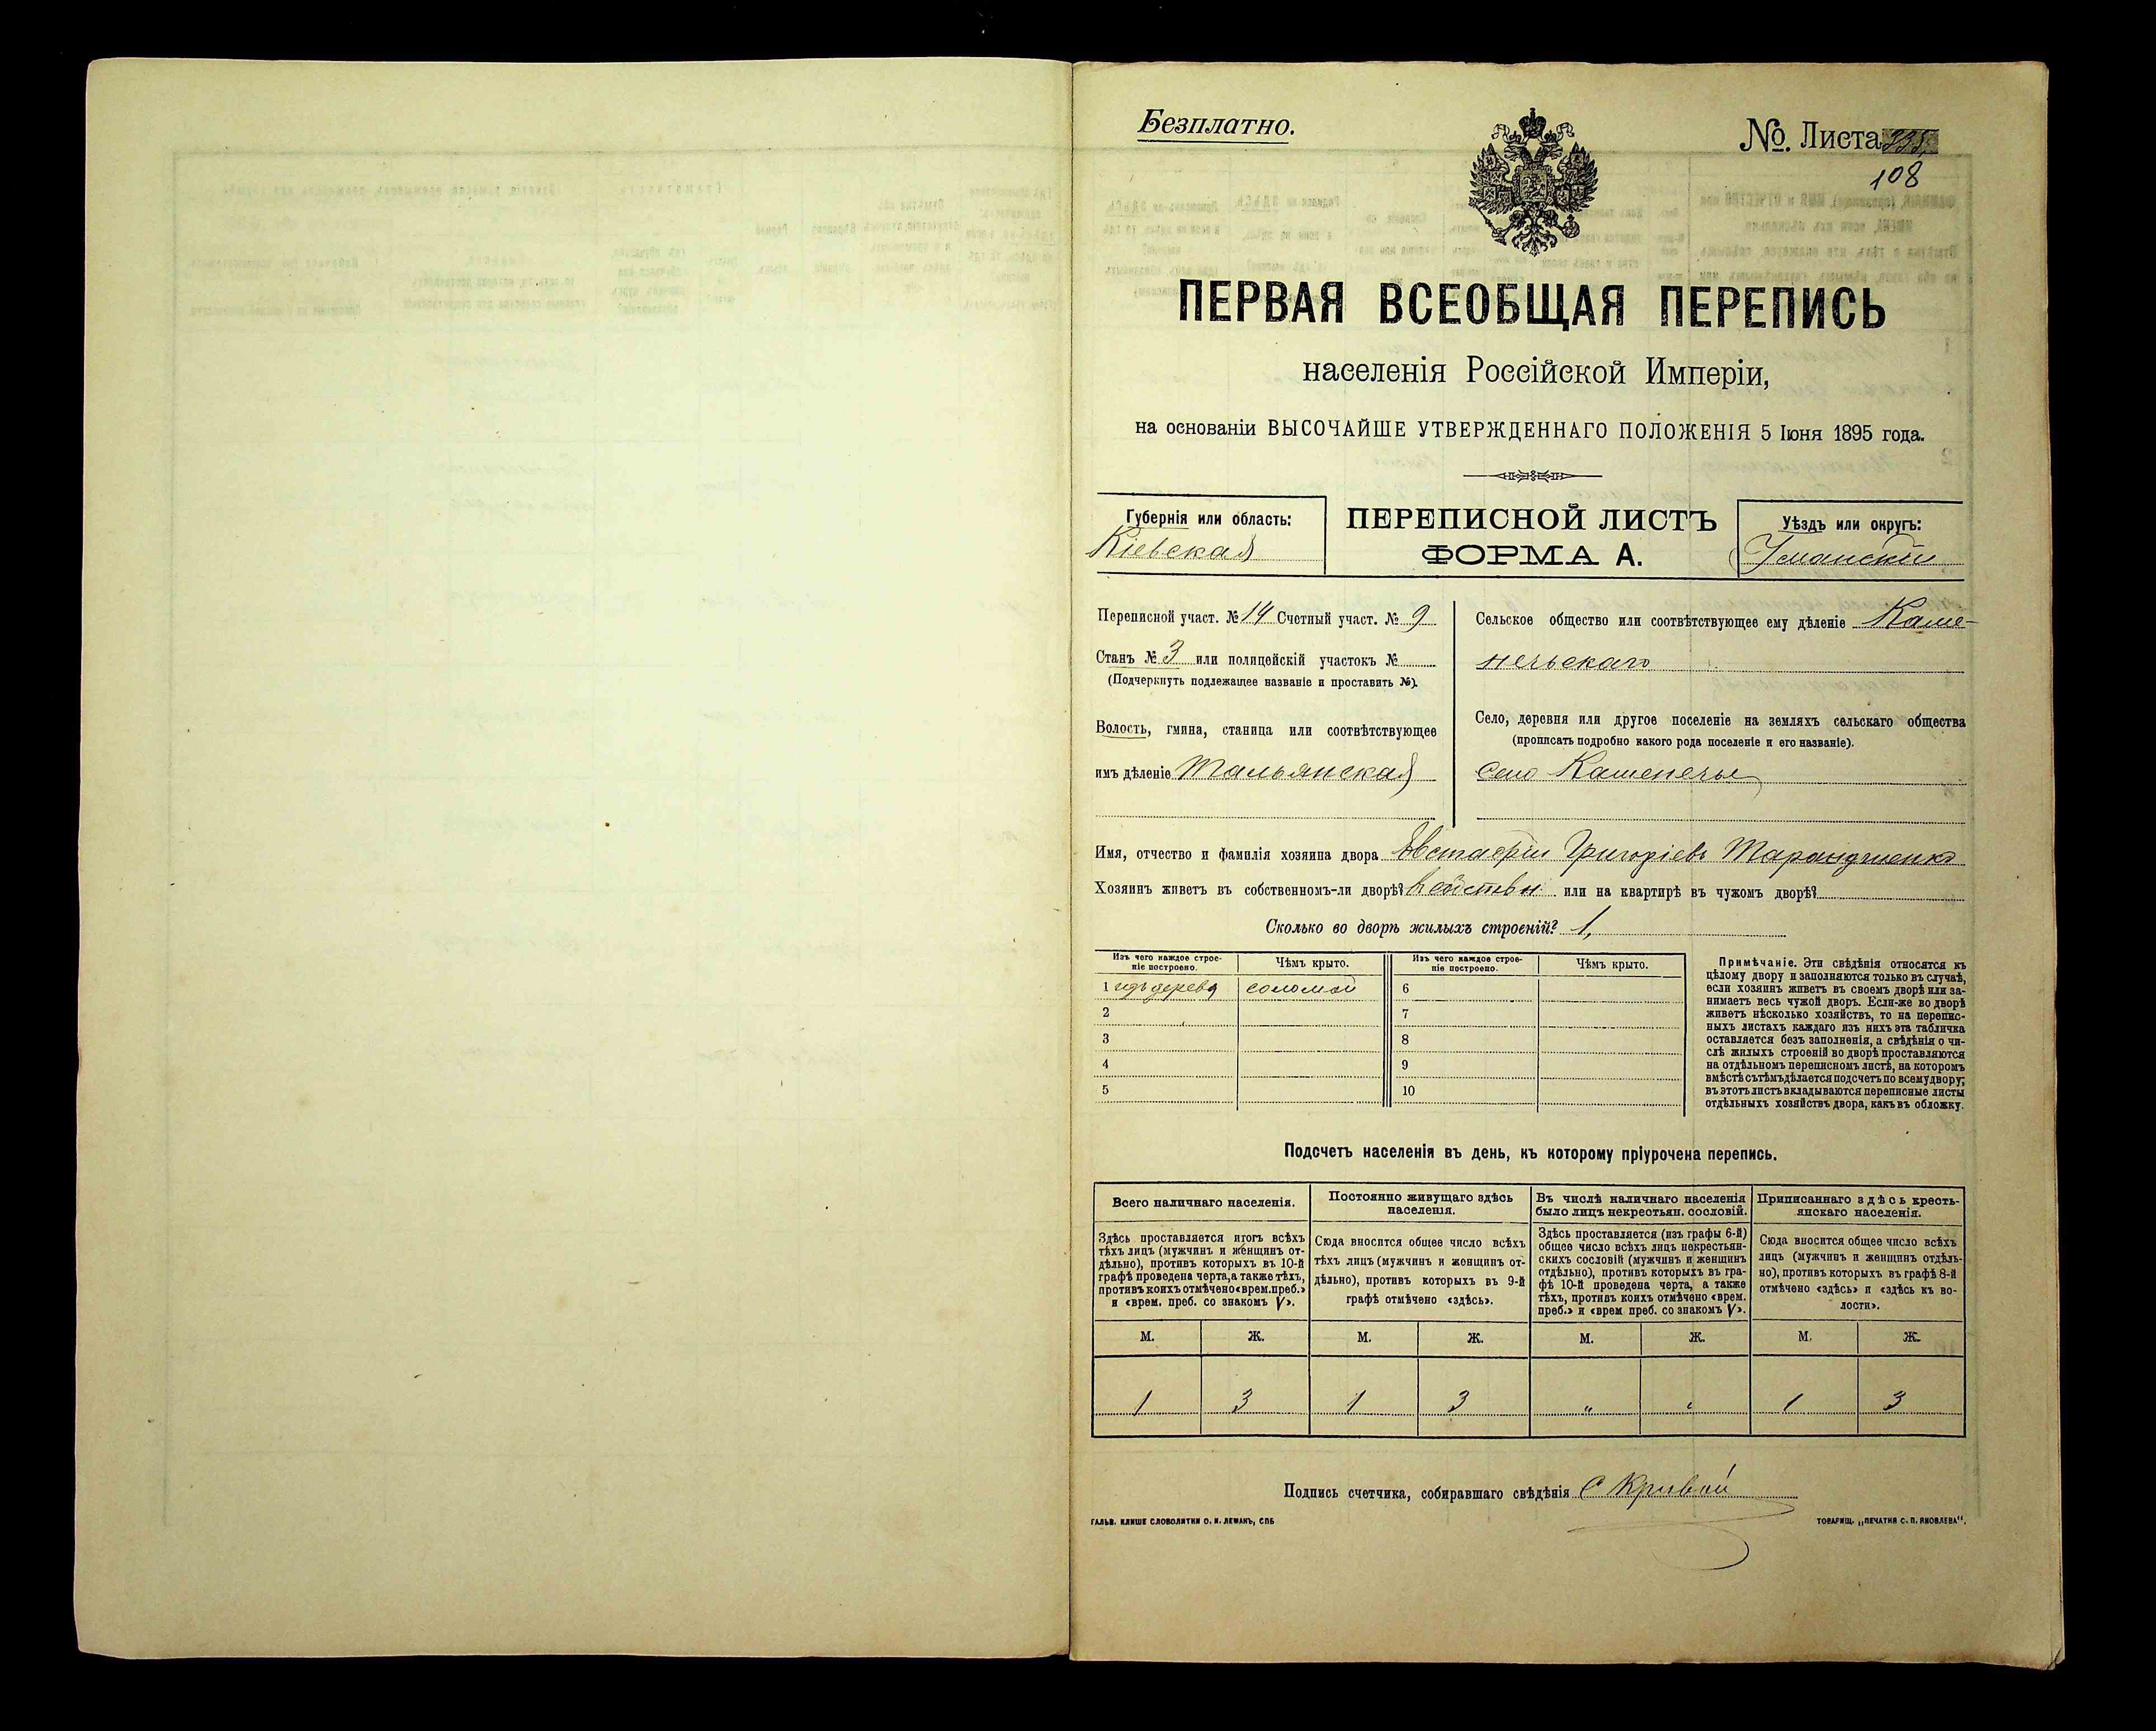 Безплатно.
№. Листа
108
ПЕРВАЯ ВСЕОБЩАЯ ПЕРЕПИСЬ
населенія Россійской Имперіи,
на основаніи ВЫСОЧАЙШЕ УТВЕРЖДЕННАГО ПОЛОЖЕНІЯ 5 Іюня 1895 года.
Губернія или область:
Кіевская
ПЕРЕПИСНОЙ ЛИСТЪ
ФОРМА А.
Уѣздъ или округъ:
Уманскій
Переписной участ. № 14 Счетный участ. № 9
Станъ № 3 или полицейскій участокъ №
(Подчеркнуть подлежащее названіе и проставить №).
Волость, гмина, станица или соотвѣтствующее
имъ дѣленіе Тальянская
Сельское общество или соотвѣтствующее ему дѣленіе Каме-
нечьскаго
Село, деревня или другое поселеніе на земляхъ сельскаго общества
(прописать подробно какого рода поселеніе и его названіе).
Село Каменечье
Имя, отчество и фамилія хозяина двора Евстафій Григоріевъ
Хозяинъ живетъ въ собственномъ-ли дворѣ? или на квартирѣ въ чужомъ дворѣ?
Сколько во дворѣ жилыхъ строеній? 1,
Изъ чего каждое строе-
ніе построено.
Чѣмъ крыто.
Изъ чего каждое строе-
ніе построено.
Чѣмъ крыто.
1 изъ дерева соломой 6
2 7
3 8
4 9
5 10
Примѣчаніе. Эти свѣдѣнія относятся къ
цѣлому двору и заполняются только въ случаѣ,
если хозяинъ живетъ въ своемъ дворѣ или за-
нимаетъ весь чужой дворъ. Если-же во дворѣ
живетъ нѣсколько хозяйствъ, то на перепис-
ныхъ листахъ каждаго изъ нихъ эта табличка
оставляется безъ заполненія, а свѣдѣнія о чи-
слѣ жилыхъ строеній во дворѣ проставляются
на отдѣльномъ переписномъ листѣ, на которомъ
вмѣстѣ съ тѣмъ дѣлается подсчетъ по всему двору;
въ этотъ листъ вкладываются переписные листы
отдѣльныхъ хозяйствъ двора, какъ въ обложку.
Подсчетъ населенія въ день, къ которому пріурочена перепись.
Всего наличнаго населенія.
Здѣсь проставляется итогъ всѣхъ
тѣхъ лицъ (мужчинъ и женщинъ от-
дѣльно), противъ которыхъ въ 10-й
графѣ проведена черта, а также тѣхъ,
противъ коихъ отмѣчено «врем. преб.»
и «врем. преб. со знакомъ V».
Постоянно живущаго здѣсь
населенія.
Сюда вносится общее число всѣхъ
тѣхъ лицъ (мужчинъ и женщинъ от-
дѣльно), противъ которыхъ въ 9-й
графѣ отмѣчено «здѣсь».
Въ числѣ наличнаго населенія
было лицъ некрестьян. сословій.
Здѣсь проставляется (изъ графы 6-й)
общее число всѣхъ лицъ некрестьян-
скихъ сословій (мужчинъ и женщинъ
отдѣльно), противъ которыхъ въ гра-
фѣ 10-й проведена черта, а также
тѣхъ, противъ коихъ отмѣчено «врем.
преб.» и «врем преб. со знакомъ V».
Приписаннаго здѣсь кресть-
янскаго населенія.
Сюда вносится общее число всѣхъ
лицъ (мужчинъ и женщинъ отдѣль-
но), противъ которыхъ въ графѣ 8-й
отмѣчено «здѣсь» и «здѣсь къ во-
лости».
М. Ж. М. Ж. М. Ж. М. Ж.
1 3 1 3 „ „ 1 3
Подпись счетчика, собиравшаго свѣдѣнія С Кривой
ГАЛЬВ. КЛИШЕ СЛОВОЛИТНИ О. И. ЛЕМАНЪ, СПБ
ТОВАРИЩ. „ПЕЧАТНЯ С. П. ЯКОВЛЕВА".